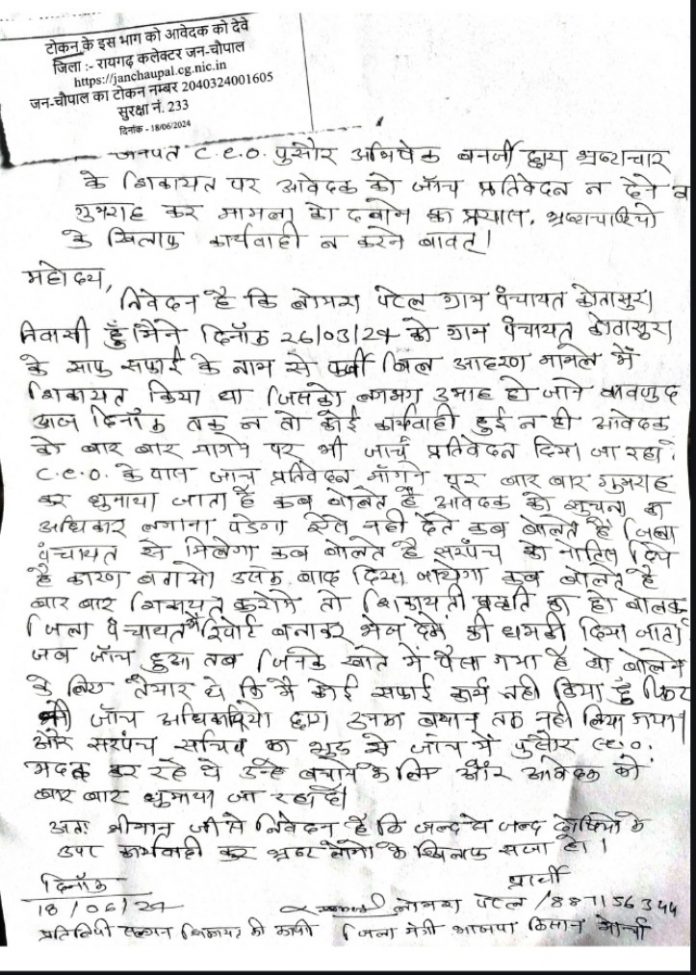 टोकन के इस भाग को आवेदक को देवे
जिला :- रायगढ़ कलेक्टर जन-चौपाल
https://janchaupal.cg.nic.in
जन-चौपाल का टोकन नम्बर 2040324001605
सुरक्षा नं. 233
दिनांक - 18/06/2024
जनपत C.e.o. पुसौर अभिषेक बनर्जी द्वारा भ्रष्टाचार
के शिकायत पर आवेदक को जॉच प्रतिवेदन न देने व
गुमराह कर मामला को दबाने का प्रयास, भ्रष्टाचारियो
के खिलाफ कार्यवाही न करने बावत्।
महोदय,
निवेदन है कि पटेल ग्राम पंचायत कोतासुरा
निवासी हुँ मैंने दिनॉक 26/03/24 को ग्राम पंचायत कोतासुरा
के साफ सफाई के नाम से फर्जी बिल आहरण मामले में
शिकायत किया था जिसको लगभग 3 माह हो जाने बावजुद
आज दिनॉक तक न तो कोई कार्यवाही हुई न ही आवेदक
को बार बार मागने पर भी जाचँ प्रतिवेदन दिया जा रहा।
C.e.o. के पास जाच प्रतिवेदन मॉगने पर बार बार गुमराह
कर घुमाया जाता है कब बोलते है आवेदक को सुचना का
अधिकार लगाना पडेगा ऐसे नही देते कब बोलते है जिला
पंचायत से मिलेगा कब बोलते है सरपंच को नोटिस दिये
है कारण बताओ उसके बाद दिया जायेगा कब बोलते है
बार बार शिकायत करोगे तो शिकायती प्रवृति का हो बोलकर
जिला पंचायत में रिपोर्ट बनाकर भेज देंगे की धमकी दिया जाता
जब जॉच हुआ तब जिनके खाते में पैसा गया है वो बोलने
के लिए तैयार थे कि मै कोई सफाई कार्य नही किया हुँ फिर
भी जॉच अधिकारियो द्वारा उनका बयान तक नही लिया गया।
और सरपंच सचिव का शुरू से जांच में पुसौर ceo.
मदद कर रहे थे उन्हे बचाने के लिए और आवेदक को
बार बार घुमाया जा रहा है।
अतः श्रीमान जी से निवेदन है कि जल्द से जल्द दोषियो के
उपर कार्यवाही कर भ्रष्ट लोगो के खिलाफ सजा हो।
दिनॉक
प्रार्थी
18/06/24
पटेल /887156344
प्रतिलिपी संलग्न शिकायत की कापी
जिला मंत्री भाजपा किसान मोर्चा